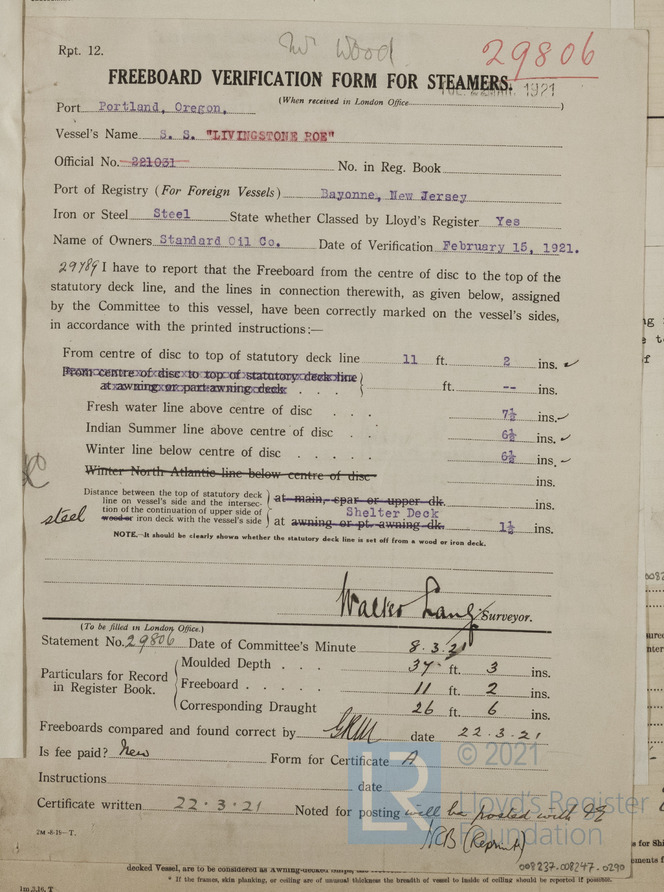 Rpt. 12.
Mr Wood
29806
FREEBOARD VERIFICATION FORM FOR STEAMERS.
(When received in London Office TUE. 22 MAR. 1921)
Port Portland, Oregon.
Vessel's Name S. S. "LIVINGSTONE ROE"
Official No. 221031 No. in Reg. Book
Port of Registry (For Foreign Vessels) Bayonne, New Jersey
Iron or Steel Steel State whether Classed by Lloyd's Register Yes
Name of Owners Standard Oil Co. Date of Verification February 15, 1921.
29789 I have to report that the Freeboard from the centre of disc to the top of the
statutory deck line, and the lines in connection therewith, as given below, assigned
by the Committee to this vessel, have been correctly marked on the vessel's sides,
in accordance with the printed instructions:—
From centre of disc to top of statutory deck line 11 ft. 2 ins.
From centre of disc to top of statutory deck line
at awning or part awning deck . . . ft. -- ins.
Fresh water line above centre of disc . . . 7½ ins.
Indian Summer line above centre of disc . . 6½ ins.
Winter line below centre of disc . . . . . 6½ ins.
Winter North Atlantic line below centre of disc ins.
Distance between the top of statutory deck
line on vessel's side and the intersec-
tion of the continuation of upper side of
wood or iron deck with the vessel's side
steel
at main, spar or upper dk. ins.
Shelter Deck
at awning or pt. awning dk. 1½ ins.
NOTE.—It should be clearly shown whether the statutory deck line is set off from a wood or iron deck.
Walter Lang Surveyor.
(To be filled in London Office.)
Statement No. 29806 Date of Committee's Minute 8.3.21
Particulars for Record
in Register Book.
Moulded Depth . . . 37 ft. 3 ins.
Freeboard . . . . . 11 ft. 2 ins.
Corresponding Draught 26 ft. 6 ins.
Freeboards compared and found correct by date 22.3.21
Is fee paid? New Form for Certificate A
Instructions date
Certificate written 22.3.21 Noted for posting will be posted with
(Reprint)
2M -8-19—T.
© 2021
LR
Lloyd's Register
Foundation
008237-008247-0290
decked Vessel, are to be considered as Awning-decked
* If the frames, skin planking, or ceiling are of unusual thickness the breadth of vessel to inside of ceiling should be reported if possible.
1m,3,16, T